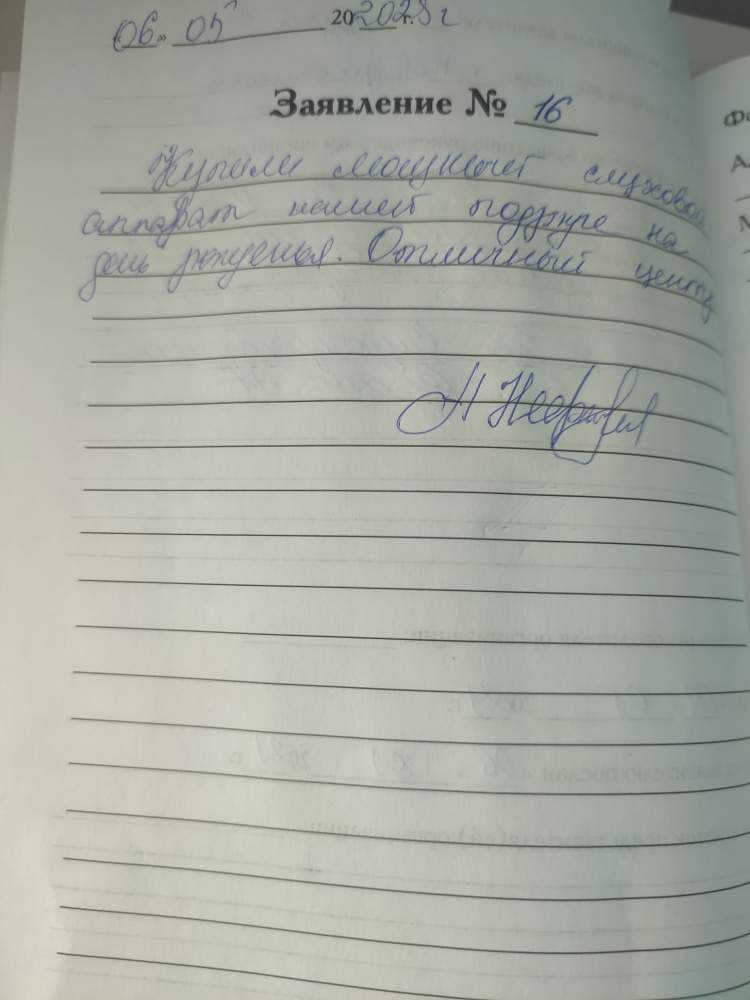 «06» 05 20 2023 г.
Заявление № 16
Купили мощный слуховой
аппарат нашей подруге на
день рождения. Отличный центр
Фа